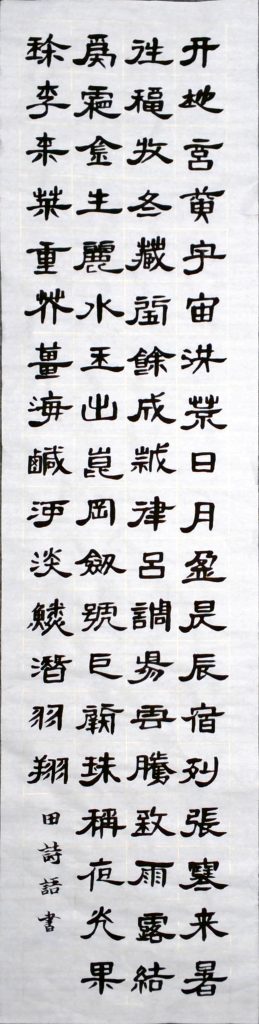 天地玄黃宇宙洪荒日月盈昃辰宿列張寒来暑
往秋收冬藏閏餘成歲律呂調陽雲騰致雨露結
爲霜金生麗水玉出崑岡劒號巨闕珠稱夜光果
珍李柰菜重芥薑海鹹河淡鱗潛羽翔
田詩語書